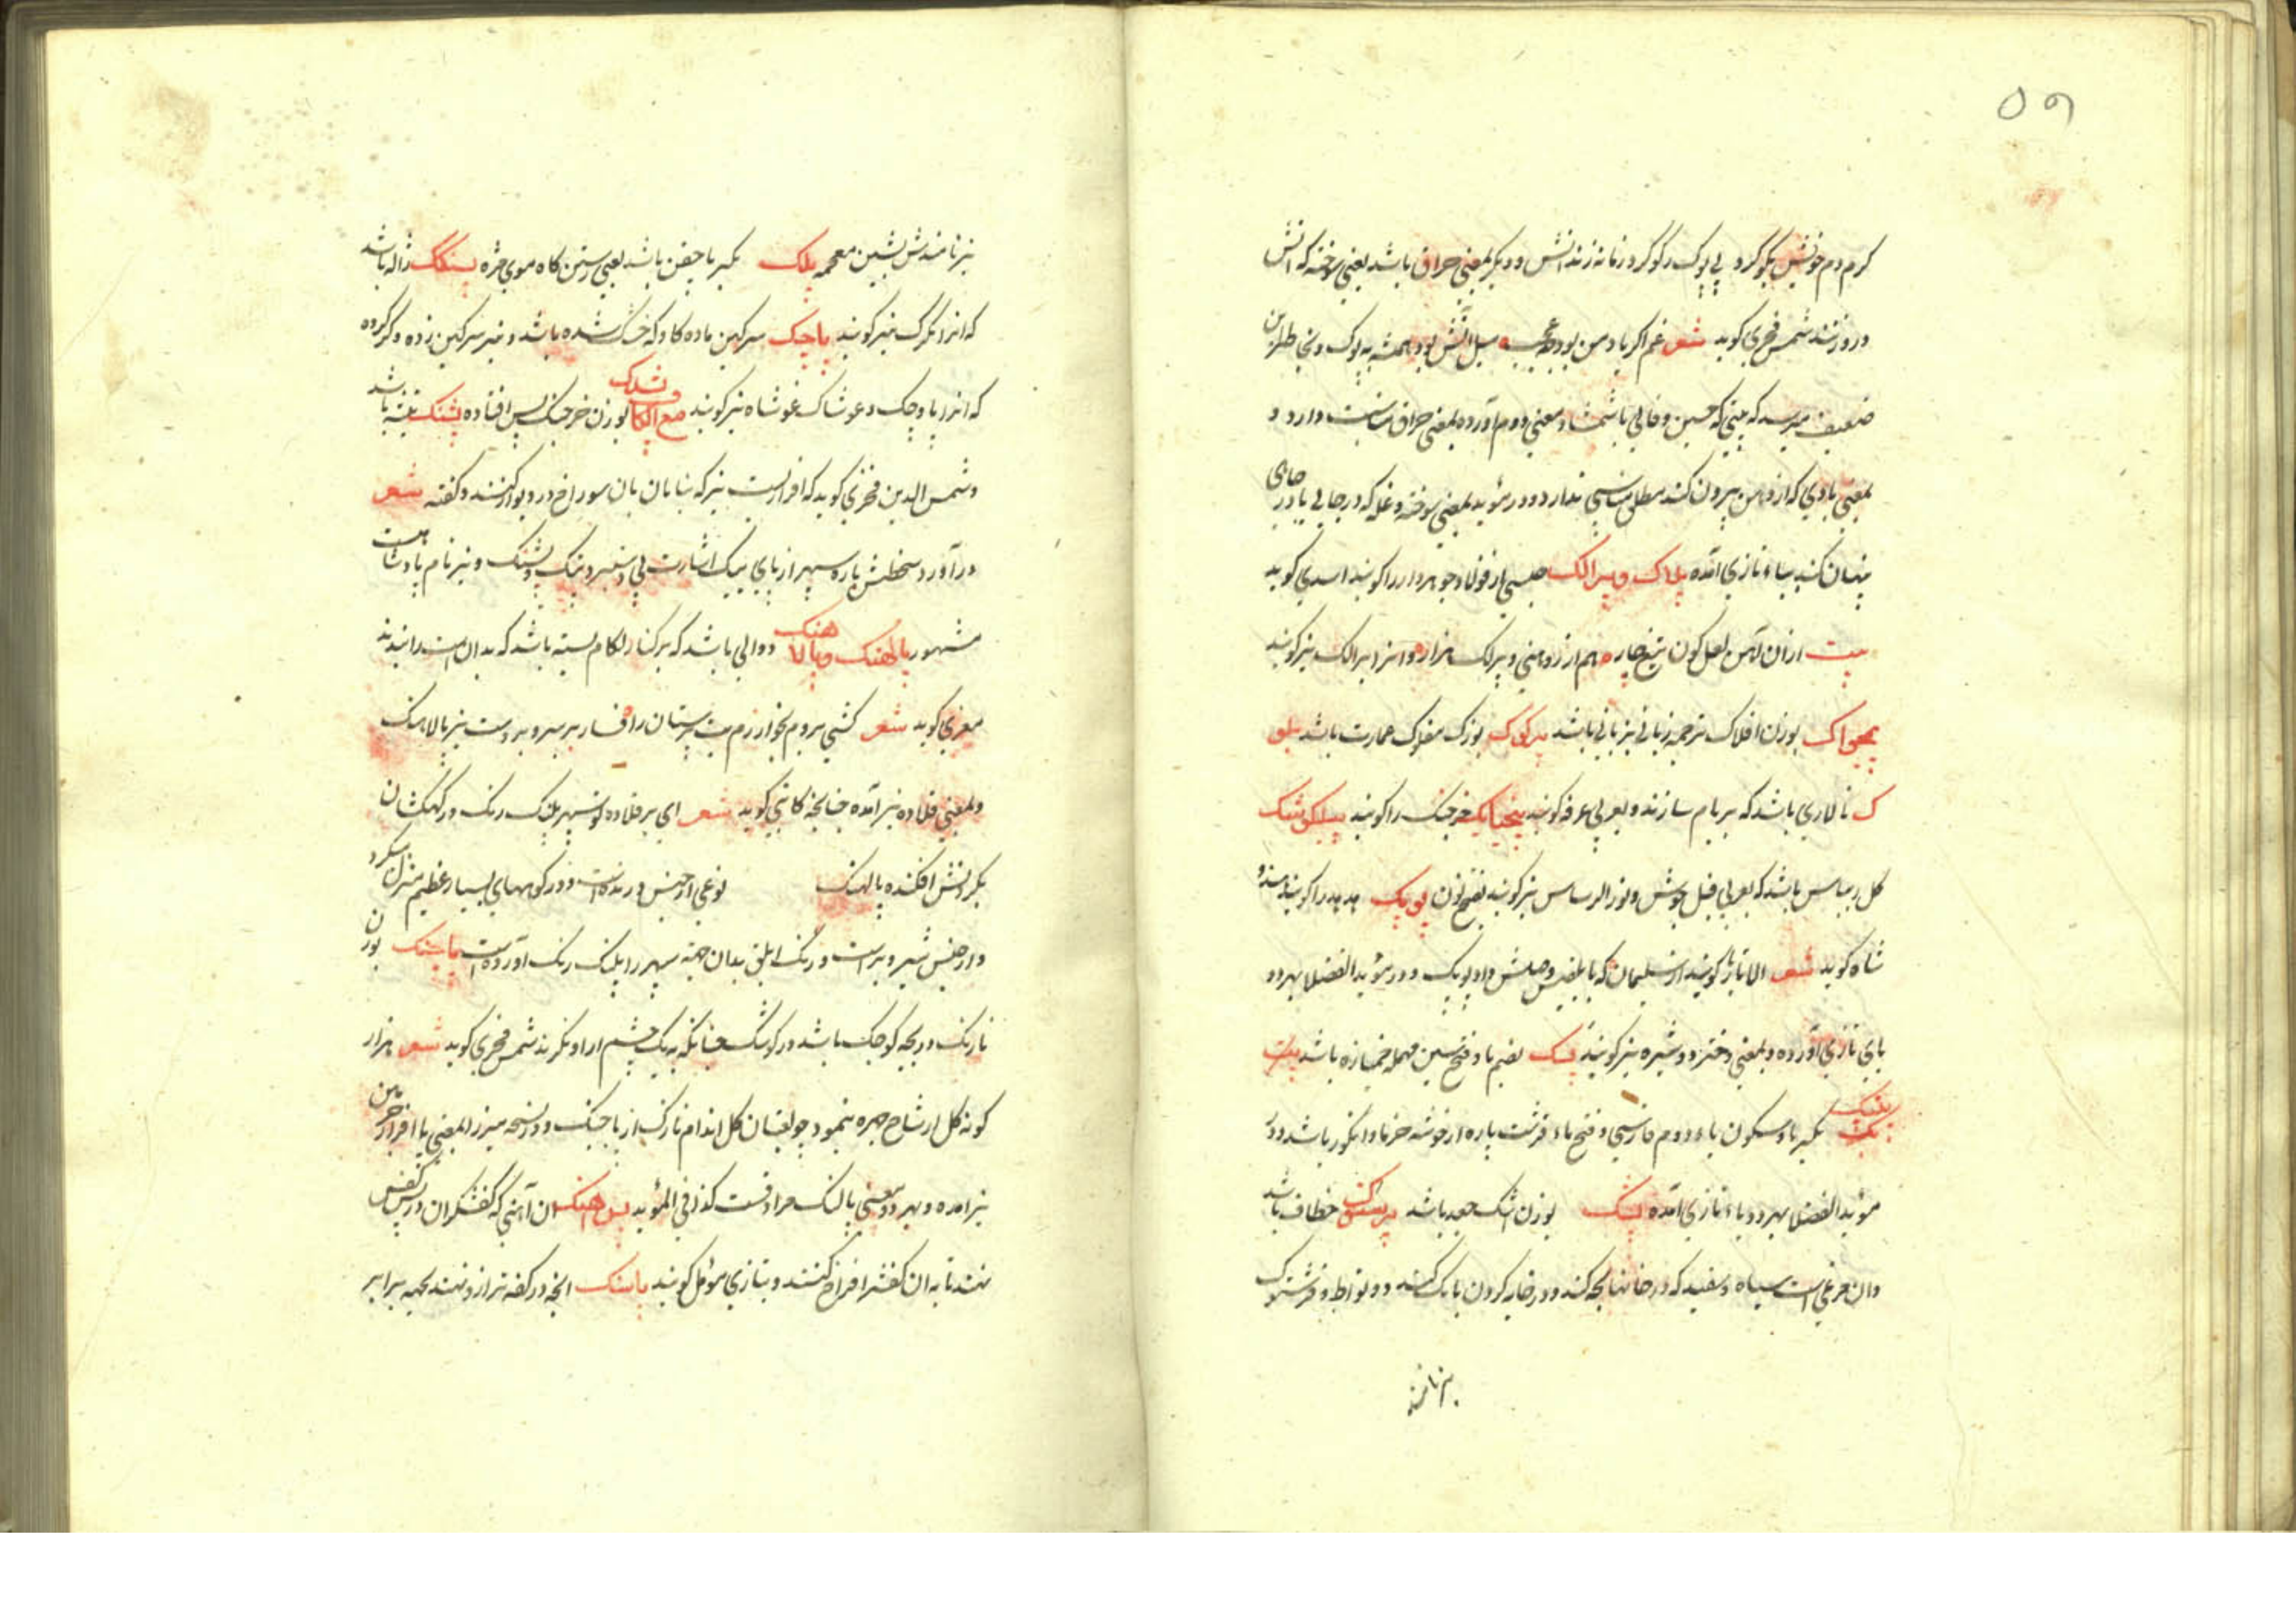 ٥٩
کرم دم خویش بکو کرد پی پوک رکوکرد زمانه زند آتش و دیکر بمعنی حراق باشد یعنی سوخته که آتش
درو زنند شمس فخری کوید شعر غم اکر باد من بود چه عجب میل آتش بود همیشه به پوک و بخاطر این
ضعیف میرسد که بیتی که حسین وفائی باستشهاد معنی دوم آورده بمعنی حراق مناسبت دارد و
بمعنی بادی که از دهن بیرون کنند مطلق مناسبتی ندارد و در مؤید بمعنی سوخته و غله که در جائی یا در چاهی
پنهان کنند بباء تازی آمده پلاک و پرالک جنسی از فولاد جوهردار را کویند اسدی کوید
بیت ازان آهن لعل کون تیغ چار هم از روهنی و پرالک هزار و انرا برالک نیز کویند
پچواک بوزن افلاک ترجمه زبانی بزبانی باشد پرکوک بوزن مفلوک عمارت باشد پلو
ک تالاری باشد که بر بام سازند و بعربی غرفه کویند پنجپایک خرچنک را کویند پیلکوشک
کل ریباس باشد که بعربی قبل جوش و نور الریباس نیز کویند بفتح نون پوپک هدهد را کویند هندو
شاه کوید شعر الا تا باز کویند از سلیمان که با بلقیس وصلش داد پوپک و در مؤید الفضلا بهر دو
بای تازی آورده و بمعنی دختر دوشیزه نیز کویند پسک بضم با و فتح سین مهمله خمیازه باشد پت
بکسر با و سکون باء دوم فارسی و فتح تاء قرشت پاره از خوشه خرما و انکور باشد و در
مؤید الفضلا بهر دو باء تازی آمده پشک بوزن اشک جعد باشد پرستوک خطاف باشد
و ان مرغی است سیاه و سفید که در خانها بچه کند و در خایه کردن بانک کند و وطواط و فرشتوک
نیز نامند
نیز نامندش بشین معجمه پلک بکسر با جفن باشد یعنی رستن کاه موی مژه پسنکک ژاله باشد
که انرا تکرک نیز کویند پاچک سرکین ماده کاو که خشک شده باشد و نیز سرکین زده و کرد کرده
که انرا پاوچک و غوشاک و غوشاه نیز کویند مع الکاف بوزن خرچنک پس افتاده پشنک تیشه باشد
و شمس الدین فخری کوید که افزاریست نیز که بنایان بان سوراخ در دیوار کنند و کفته شعر
درآورد سخطش باره سپهر از پای بیک اشارت بی دستبرد و بیک و پشنک و نیز نام پادشاهیست
مشهور پالهنک و پالاهنک دوالی باشد که بر کنار لکام بسته باشد که بدان است را بندند
معزی کوید شعر کشتی بروم بخوارزم بت پرستان را فسار بر سر و بر دست نیز پالاهنک
و بمعنی قلاده نیز آمده چنانچه کاتبی کوید شعر ای بر قلاده تو سپهر پلنک رنک در کهکشان
بکردنش افکنده پالهنک نوعی از جنس درنده است و در کوههای بسیار عظیم منزل میکرد
و از جنس شیر و ببر است و رنک ابلق بدان جهة سپهر را پلنک رنک آورده است پاچنک بوزن
نارنک دریچه کوچک باشد در کوشک چنانکه به یک چشم ازاو نکرند شمس فخری کوید شعر هزار
کونه کل از شاخ چهره بنمود چو لعبتان کل اندام نازک از پاچنک و در نسخه میرزا بمعنی پا افزار چرمین
نیز آمده و بهر دو معنی پالنک مرادفست کذا فی المؤید پس اهنک ان آهنی که کفشکران در پس کفش
نهند تا به ان کفش فراخ کنند و بتازی موئل کویند پاسنک انچه در کفه ترازو نهند بجهة برابر